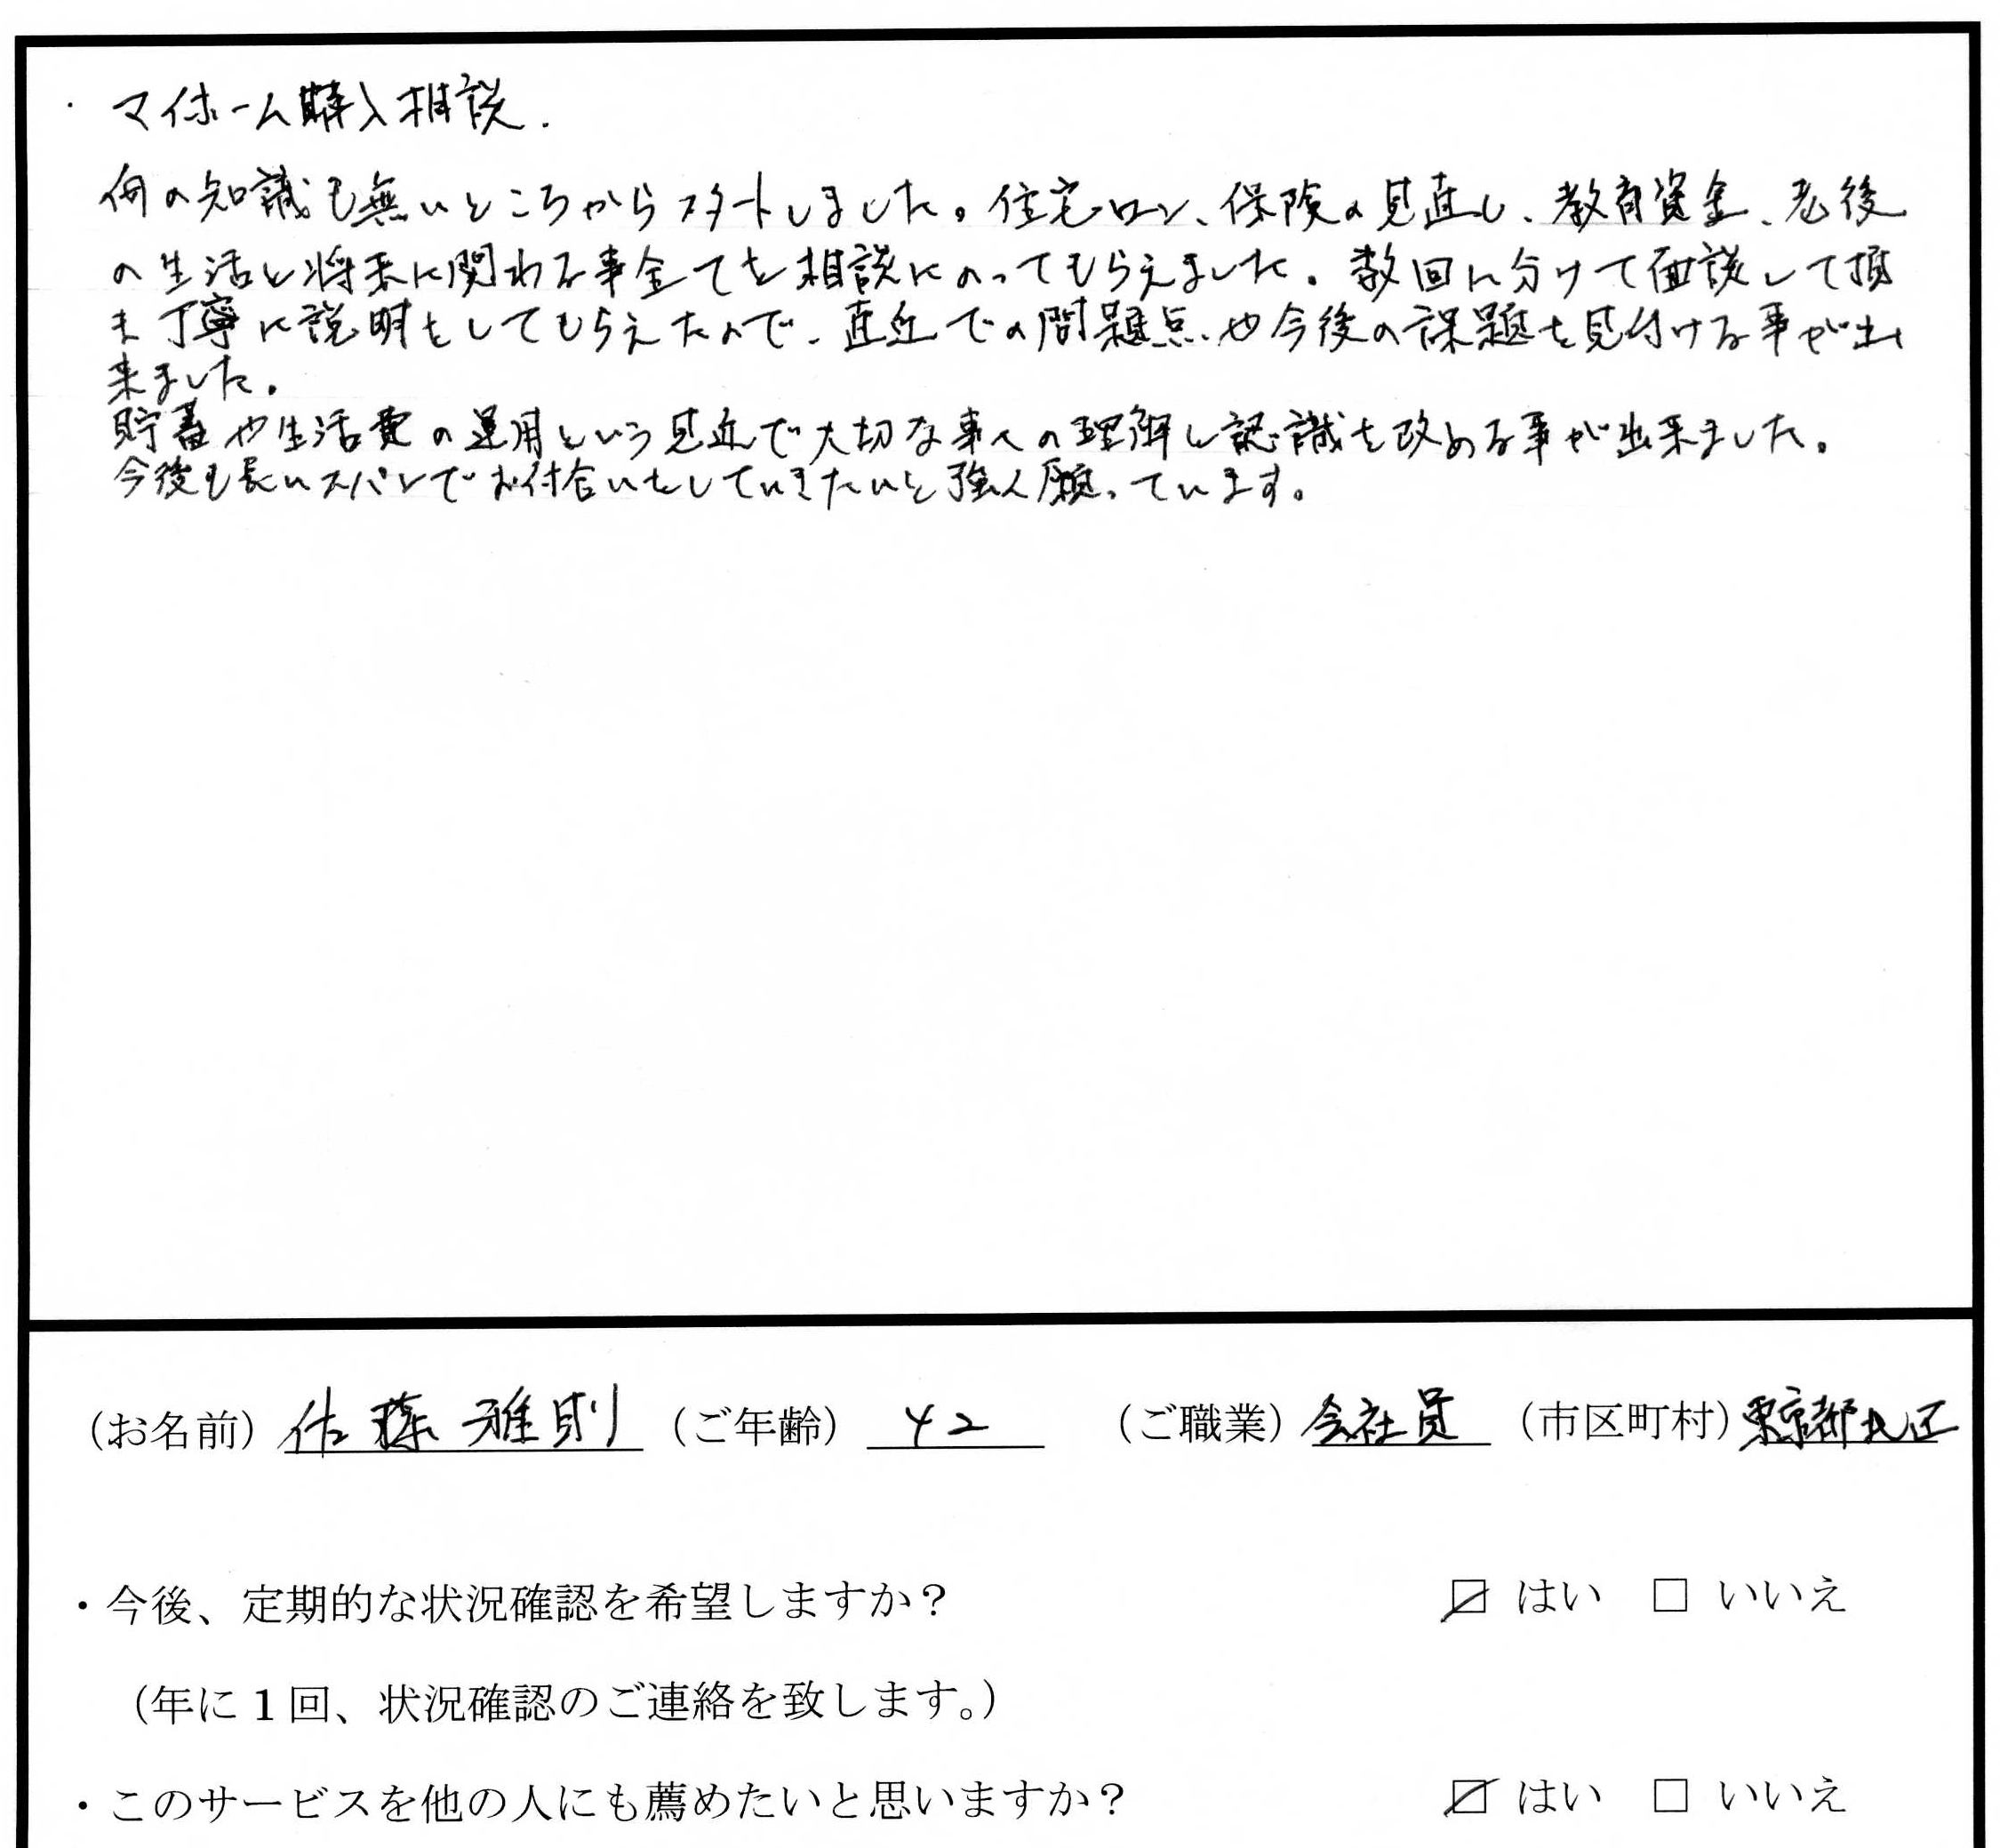 ・ マイホーム購入相談.
何の知識も無いところからスタートしました。住宅ローン、保険の見直し、教育資金、老後
の生活と将来に関わる事全てを相談にのってもらえました。数回に分けて面談して頂
き丁寧に説明をしてもらえたので、直近での問題点や今後の課題を見付ける事が出
来ました。
貯蓄や生活費の運用という身近で大切な事への理解と認識を改める事が出来ました。
今後も長いスパンでお付合いをしていきたいと強く願っています。
（お名前）佐藤 雅則 （ご年齢） 42 （ご職業）会社員 （市区町村）東京都北区
・今後、定期的な状況確認を希望しますか？ ☑ はい □ いいえ
（年に１回、状況確認のご連絡を致します。）
・このサービスを他の人にも薦めたいと思いますか？ ☑ はい □ いいえ